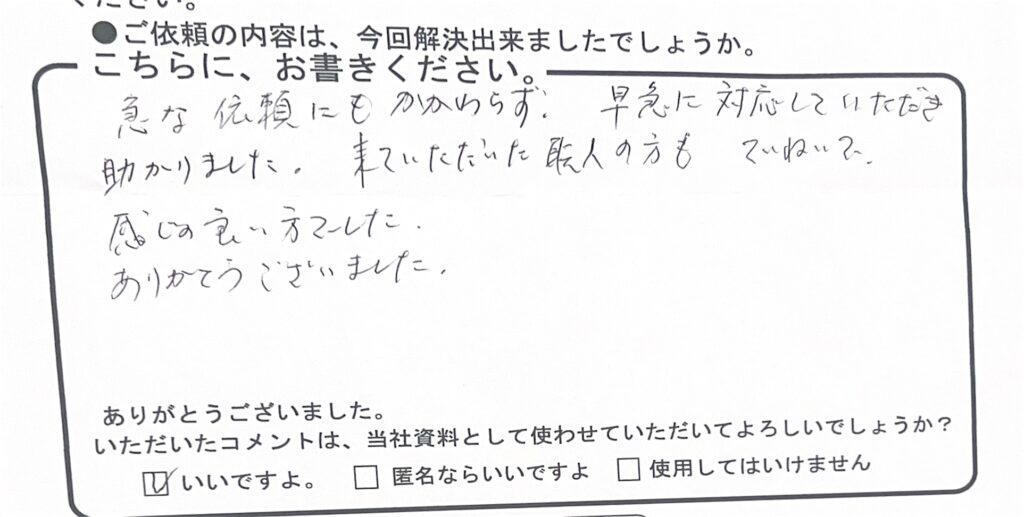 ください。
●ご依頼の内容は、今回解決出来ましたでしょうか。
こちらに、お書きください。
急な依頼にもかかわらず、早急に対応していただき
助かりました。来ていただいた職人の方も ていねいで、
感じの良い方でした。
ありがとうございました。
ありがとうございました。
いただいたコメントは、当社資料として使わせていただいてよろしいでしょうか?
☑いいですよ。 □匿名ならいいですよ □使用してはいけません